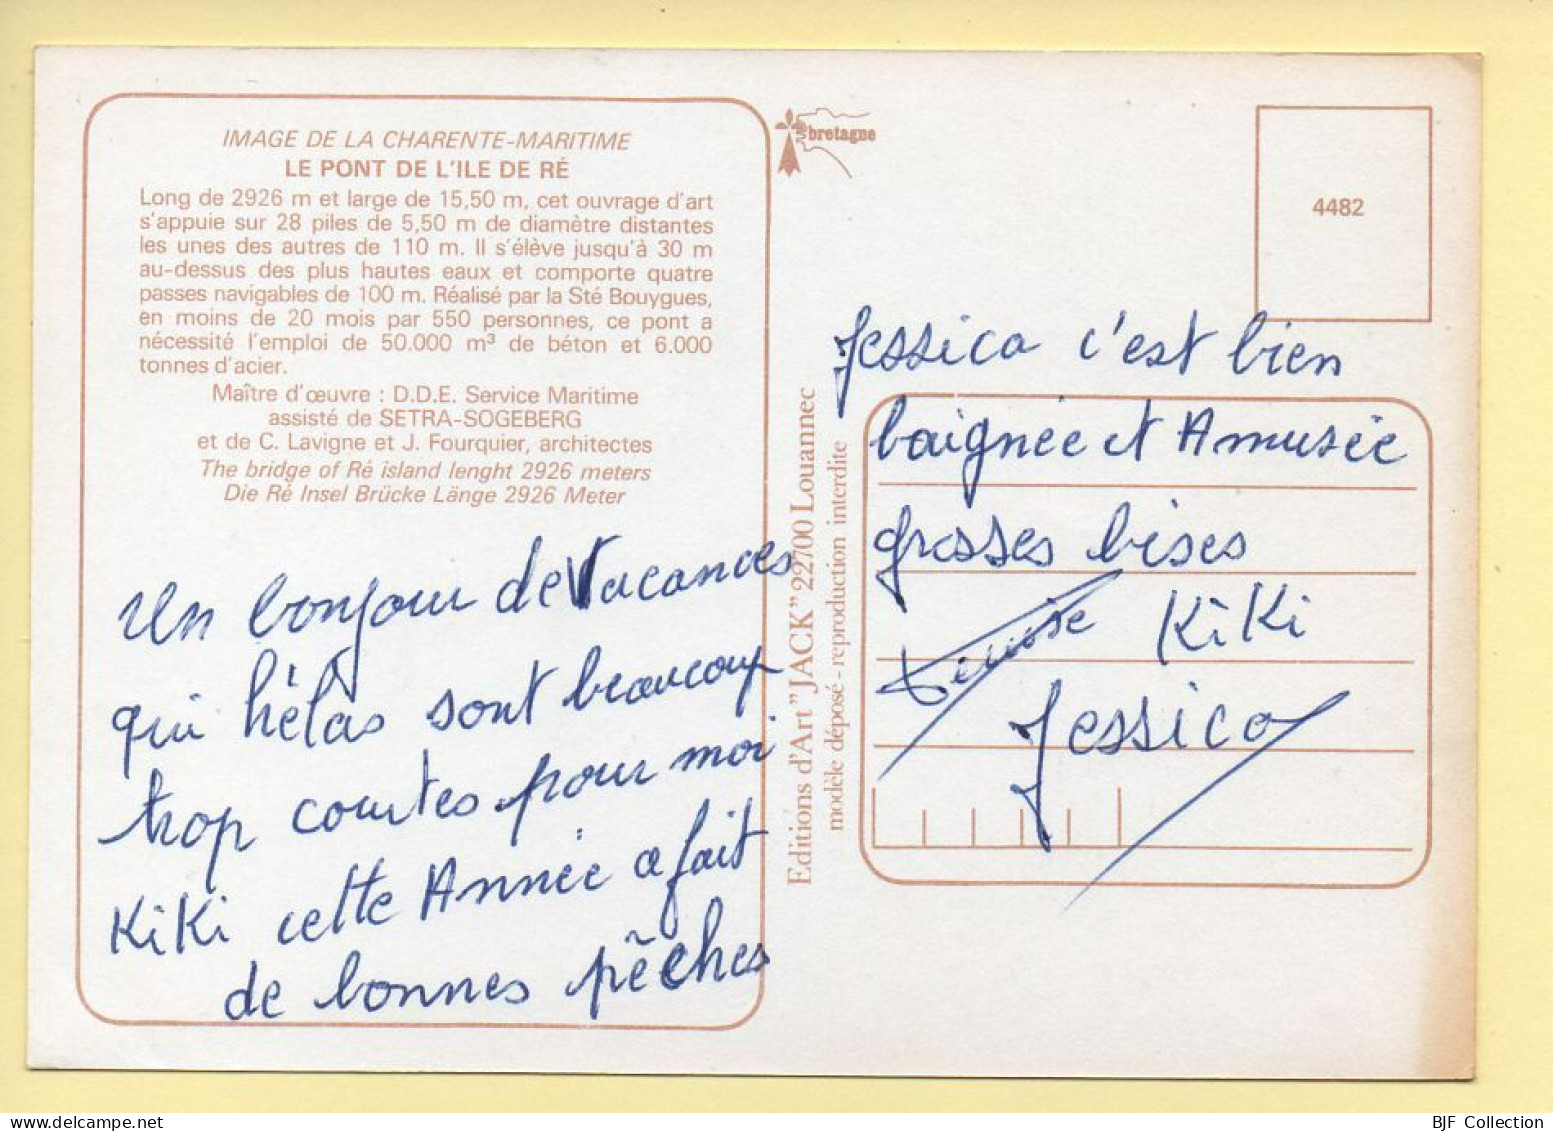 IMAGE DE LA CHARENTE-MARITIME
LE PONT DE L'ILE DE RÉ
Long de 2926 m et large de 15,50 m, cet ouvrage d'art
s'appuie sur 28 piles de 5,50 m de diamètre distantes
les unes des autres de 110 m. Il s'élève jusqu'à 30 m
au-dessus des plus hautes eaux et comporte quatre
passes navigables de 100 m. Réalisé par la Sté Bouygues,
en moins de 20 mois par 550 personnes, ce pont a
nécessité l'emploi de 50.000 m³ de béton et 6.000
tonnes d'acier.
Maître d'œuvre : D.D.E. Service Maritime
assisté de SETRA-SOGEBERG
et de C. Lavigne et J. Fourquier, architectes
The bridge of Ré island lenght 2926 meters
Die Ré Insel Brücke Länge 2926 Meter
Un bonjour de Vacances
qui hélas sont beaucoup
trop courtes pour moi
KiKi cette Année a fait
de bonnes pêches
bretagne
Editions d'Art "JACK" 22700 Louannec
modèle déposé - reproduction interdite
4482
Jessica c'est bien
baignée et Amusée
grosses bises
KiKi
Jessica
BJF Collection